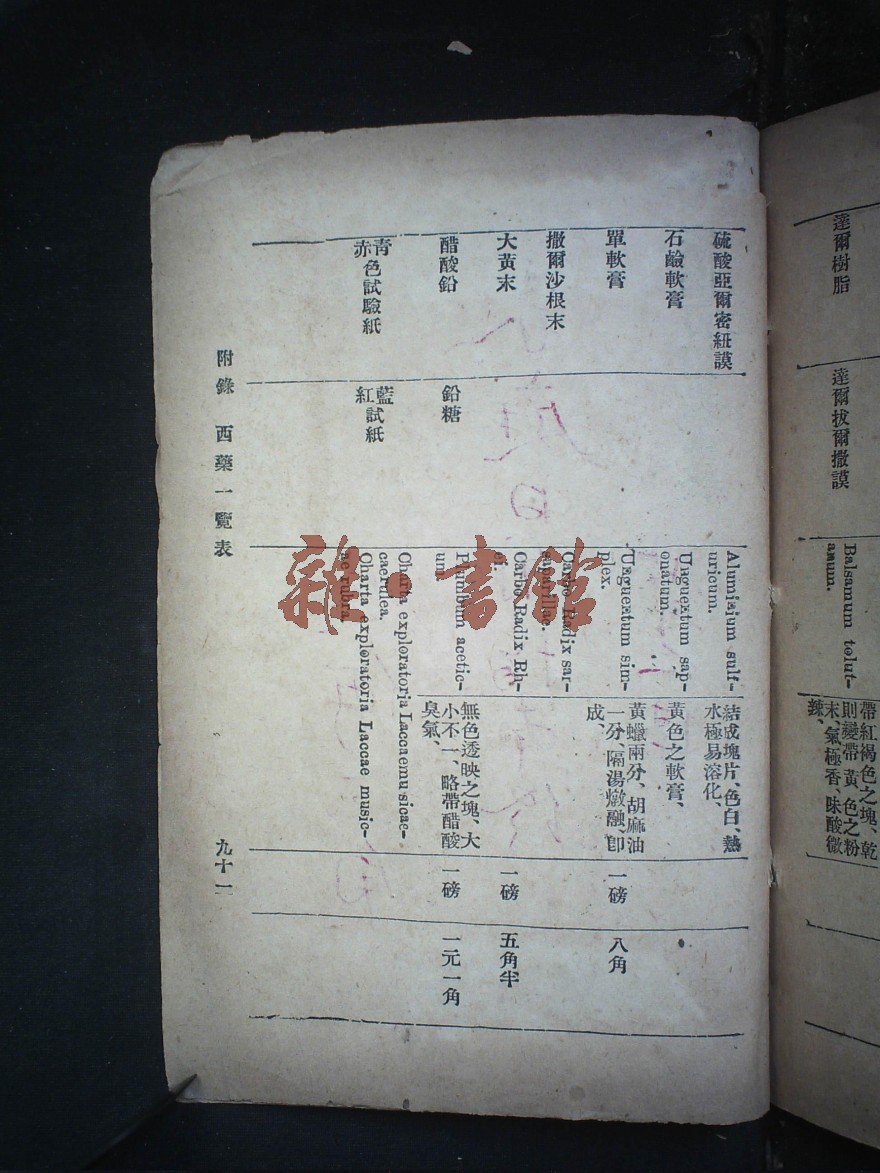 達爾樹脂
達爾拔爾撒謨
Balsamum tolut-
anum.
帶紅褐色之塊、乾
則變帶黃色之粉
末、氣極香、味酸微
辣、
硫酸亞爾密紐謨
Aluminium sulf-
uricum.
結成塊片、色白、熱
水極易溶化、
石鹼軟膏
Unguentum sap-
onatum.
黃色之軟膏、
單軟膏
Unguentum sim-
plex.
黃蠟兩分、胡麻油
一分、隔湯燉融、即
成、
一磅
八角
撒爾沙根末
Carbo Radix sar-
saparillae.
大黃末
Carbo Radix Rh-
ei.
一磅
五角半
醋酸鉛
鉛糖
Plumbum acetic-
um
無色透映之塊、大
小不一、略帶醋酸
臭氣、
一磅
一元一角
青
赤色試驗紙
藍
紅試紙
Charta exploratoria Laccaemusicae-
caerulea.
Charta exploratoria Laccae music-
ae rubra
附錄 西藥一覽表
九十一
雜·書館